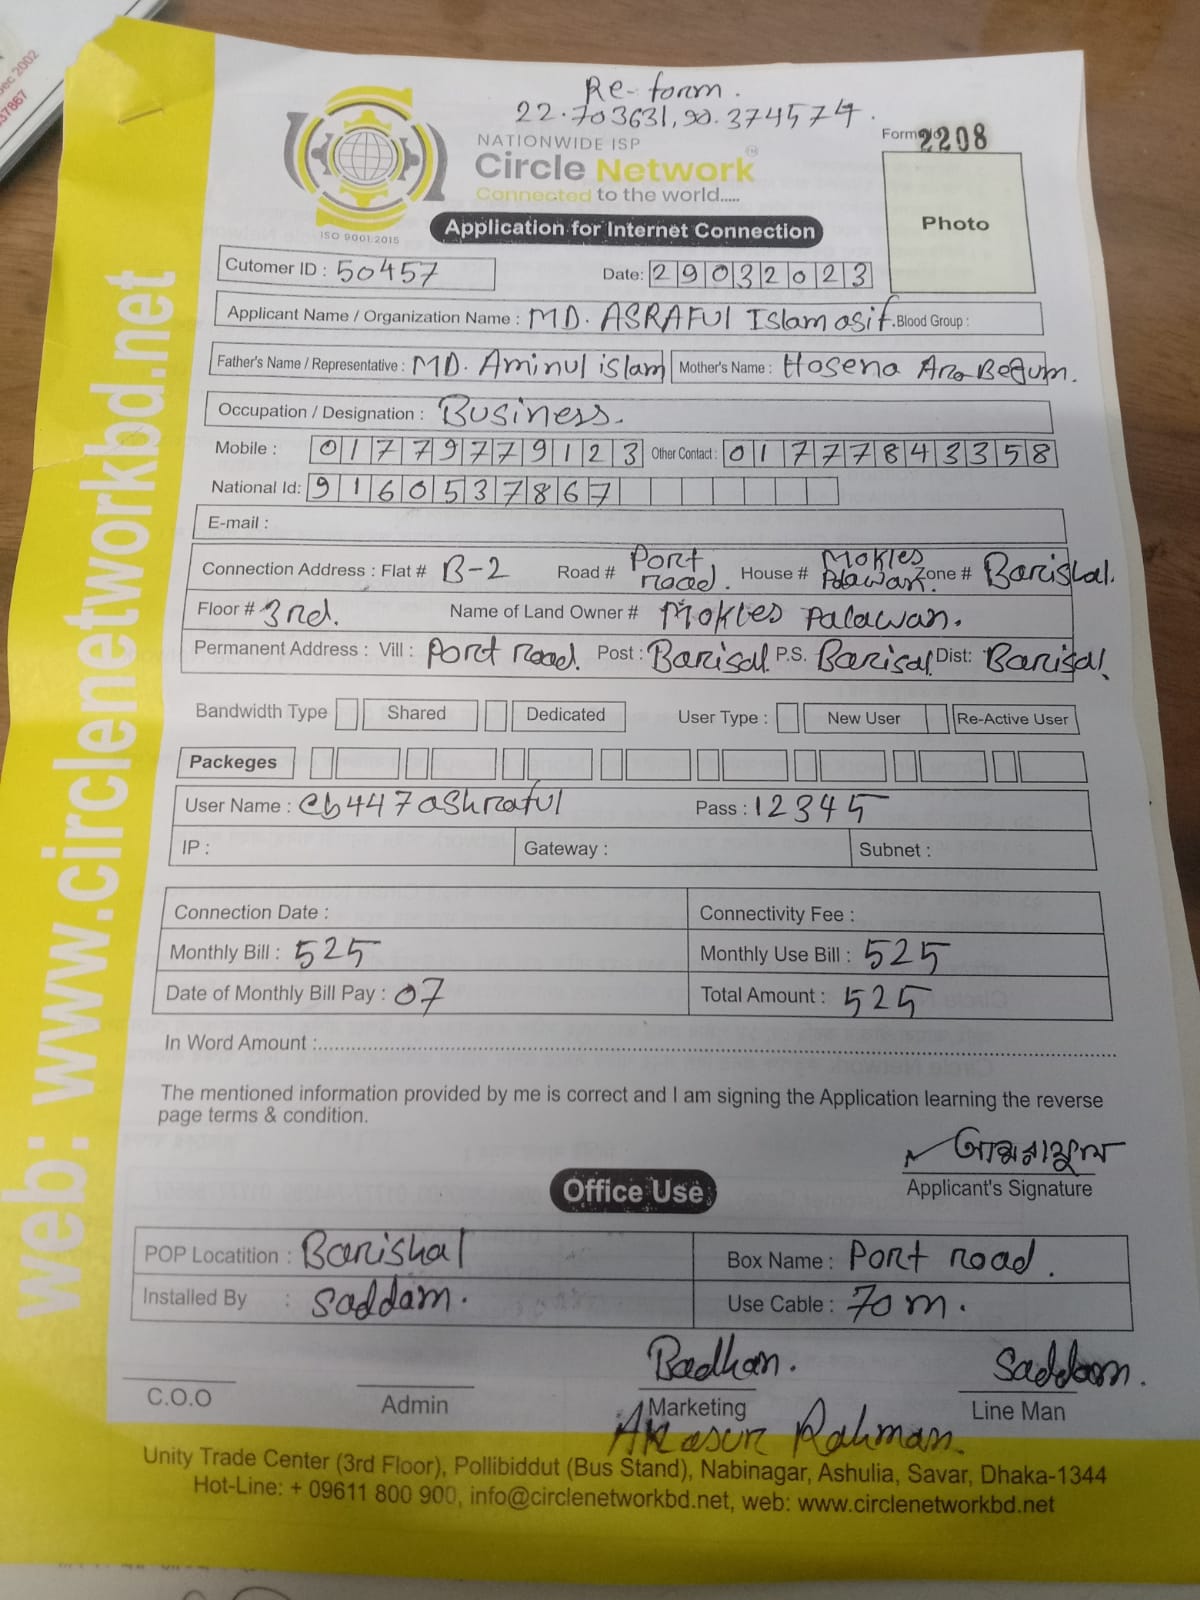 Dec 2002
37867
Re-form.
22.703631,90.374574.
NATIONWIDE ISP
Circle Network
Connected to the world.....
ISO 9001:2015
Form 2208
Photo
Application for Internet Connection
Cutomer ID : 50457 Date: 29032023
Applicant Name / Organization Name : MD. ASRAFUl Islam asif. Blood Group :
Father's Name / Representative : MD. Aminul islam Mother's Name : Hosena Ara Begum.
Occupation / Designation : Business.
Mobile : 01779779123 Other Contact : 01777843358
National Id: 9160537867
E-mail :
Connection Address : Flat # B-2 Road # Port road. House # Mokles Palawan. Zone # Barishal.
Floor # 3rd. Name of Land Owner # Mokles Palawan.
Permanent Address : Vill : Port road. Post : Barisal. P.S. Barisal Dist: Barisal.
Bandwidth Type Shared Dedicated User Type : New User Re-Active User
Packeges
User Name : cb447ashraful Pass : 12345
IP : Gateway : Subnet :
Connection Date : Connectivity Fee :
Monthly Bill : 525 Monthly Use Bill : 525
Date of Monthly Bill Pay : 07 Total Amount : 525
In Word Amount :
The mentioned information provided by me is correct and I am signing the Application learning the reverse
page terms & condition.
আসরাফুল
Applicant's Signature
Office Use
POP Locatition : Barishal Box Name : Port road.
Installed By : Saddam. Use Cable : 70m.
Badhan. Saddam.
C.O.O Admin Marketing Line Man
Rahman.
Unity Trade Center (3rd Floor), Pollibiddut (Bus Stand), Nabinagar, Ashulia, Savar, Dhaka-1344
Hot-Line: + 09611 800 900, info@circlenetworkbd.net, web: www.circlenetworkbd.net
web: www.circlenetworkbd.net